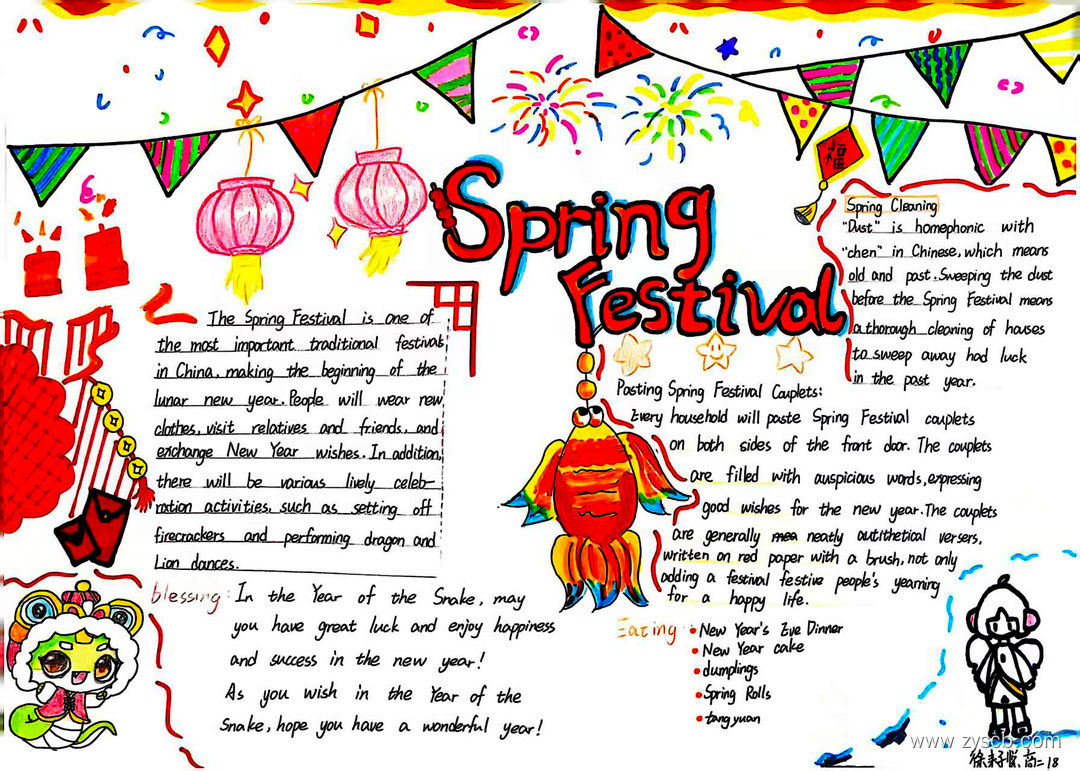 Spring
Festival
福
The Spring Festival is one of
the most important traditional festivals
in China, making the beginning of the
lunar new year. People will wear new
clothes, visit relatives and friends, and
exchange New Year wishes. In addition,
there will be various lively celeb-
ration activities, such as setting off
firecrackers and performing dragon and
Lion dances.
blessing: In the Year of the Snake, may
you have great luck and enjoy happiness
and success in the new year!
As you wish in the Year of the
Snake, hope you have a wonderful year!
Spring Cleaning
"Dust" is homephonic with
"chen" in Chinese, which means
old and past. Sweeping the dust
before the Spring Festival means
a thorough cleaning of houses
to sweep away had luck
in the past year.
Pasting Spring Festival Couplets:
Every household will paste Spring Festival couplets
on both sides of the front door. The couplets
are filled with auspicious words, expressing
good wishes for the new year. The couplets
are generally neatly autithetical versers,
written on red paper with a brush, not only
adding a festival festive people's yearning
for a happy life.
Eating:
• New Year's Eve Dinner
• New Year cake
• dumplings
• Spring Rolls
• tangyuan
www.zyscb.com
高二18